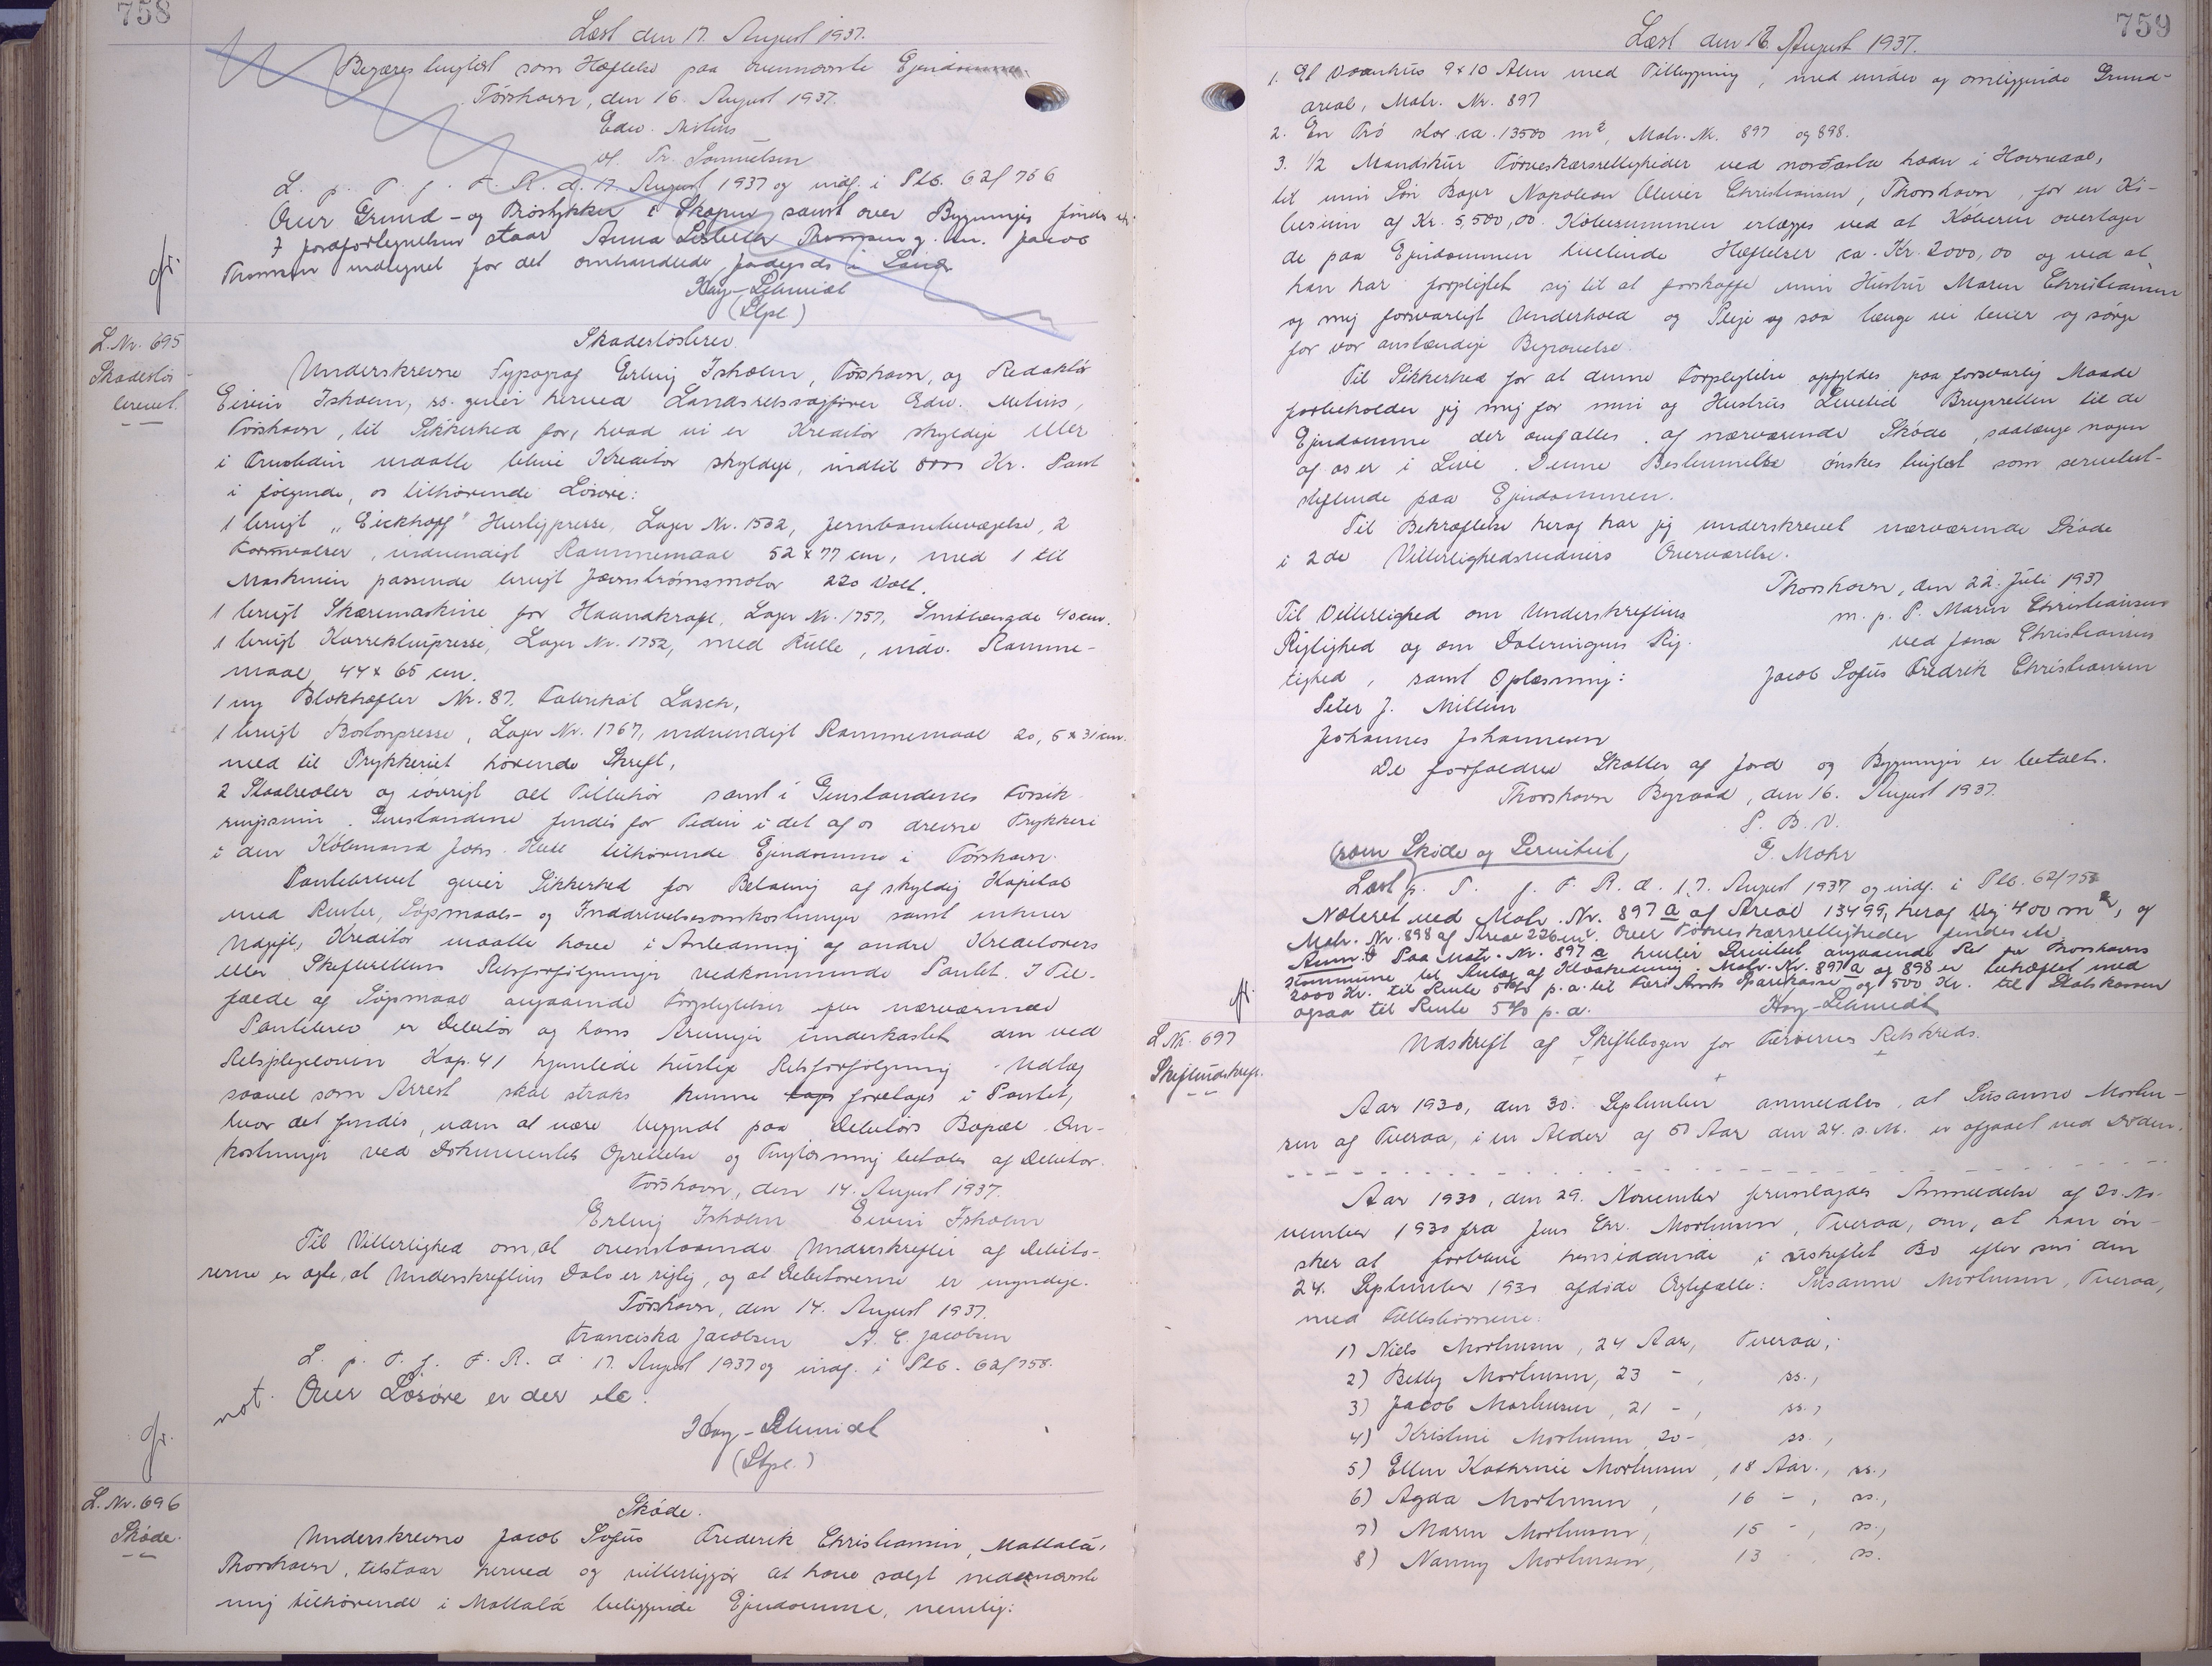 758
Læst den 17. August 1937.
Begæres tinglæst som Hæftelse paa ovennævnte Ejendomme.
Tórshavn, den 16. August 1937.
Edw. Mitens
v/ Tr. Samuelsen
L. p. T. f. F. R. d. 17 August 1937 og indf. i Ptb. 62/756
Over Grund- og Trøstykker i Skopun samt over Bygninger findes
I Jordfortegnelsen staar Anna Lisbeth Thomsen g. m. Jacob
Thomsen indtegnet for det omhandlede Jordgods i Sand
Kay-Schmidt
(Stpl)
gr.
L. Nr. 695
Skadesløs-
brevet.
Skadesløsbrev.
Underskrevne Typograf Erling Isholm, Tórshavn, og Redaktör
Eivin Isholm, ss. giver herved Landsretssagfører Edw. Mitens,
Tórshavn, til Sikkerhed for, hvad vi er Kreditor skyldige eller
i Fremtiden maatte blive Kreditor skyldige, indtil Kr. Pant
i følgende, os tilhørende Løsøre:
1 brugt „Eickhoff" Hurtigpresse, Lager Nr. 1532, Jernbanebevægelse, 2
Formvalser, indvendigt Rammemaal 52 x 77 cm, med 1 til
Maskinen passende brugt Jævnstrømsmotor 220 Volt.
1 brugt Skæremaskine for Haandkraft, Lager Nr. 1757, Snitlængde 40 cm.
1 brugt Korrekturpresse, Lager Nr. 1752, med Rulle, indv. Ramme-
maal, 44 x 65 cm.
1 ny Blokhæfter Nr. 87. Fabrikat Lasch,
1 brugt Bostonpresse, Lager Nr. 1767, indvendigt Rammemaal 20,5 x 31 cm.
med til Trykkeriet hørende Skrift,
2 Staalreoler og iøvrigt alt Tilbehør samt i Genstandenes Forsik-
ringssum. Genstandene findes for Tiden i det af os drevne Trykkeri
i den Købmand Johs. tilhørende Ejendomme i Tórshavn.
Pantebrevet giver Sikkerhed for Betaling af skyldig Kapital
med Renter, Søgsmaals- og Inddrivelsesomkostninger samt enhver
Udgift, Kreditor maatte have i Anledning af andre Kreditorers
eller Skifterettens Retsforfølgninger vedkommende Pantet. I Til-
fælde af Søgsmaal angaaende Forpligtelser efter nærværende
Pantebrev er Debitor og hans Arvinger underkastet den ved
Retsplejeloven Kap. 41 hjemlede hurtige Retsforfølgning. Udlæg
saavel som Arrest skal straks kunne foretages i Pantet,
hvor det findes, uden at være begyndt paa Debitors Bopæl. Om-
kostninger ved Dokumentets Oprettelse og Tinglæsning betales af Debitor.
Tórshavn, den 14. August 1937.
Erling Isholm Eivin Isholm
Til Vitterlighed om, at ovenstaaende Underskrifter af Debito-
rerne er ægte, at Underskriftens Dato er rigtig, og at Debitorerne er myndige.
Tórshavn, den 14. August 1937.
Franciska Jacobsen A. C. Jacobsen
L. p. T. f. F. R. d. 17. August 1937 og indf. i Ptb. 62/758.
not. Over Løsøre er der ete.
Kay-Schmidt
(Stpl.)
gr.
L. Nr. 696
Skøde.
Skøde.
Underskrevne Jacob Sofus Frederik Christiansen, Mattalá,
Thorshavn, tilstaar herved og vitterliggør at have solgt nedennævnte
mig tilhørende i Mattalá beliggende Ejendomme, nemlig:
759
Læst den 17. August 1937.
1. Et Vaanhus 9 x 10 Alen med Tilbygning, med under og omliggende Grund-
areal, Matr. Nr. 897
2. En Trö stor ca. 13500 m², Matr. Nr. 897 og 898.
3. 1/2 Mandskur Törveskærsrettigheder ved i Havnedal,
til min Søn Bager Napoleon Oliver Christiansen, Thorshavn, for en Kö-
besum af Kr. 5,500,00. Købesummen erlægges ved at Köberen overtager
de paa Ejendommen hvilende Hæftelser ca. Kr. 2000,00 og ved at
han har forpligtet sig til at forskaffe min Hustru Maren Christiansen
og mig forsvarligt Underhold og Pleje og saa længe vi lever og sørge
for vor anstændige Begravelse.
Til Sikkerhed for at denne Forpligtelse opfyldes paa forsvarlig Maade
forbeholder jeg mig for min og Hustrus Levetid Brugsretten til de
Ejendomme der omfattes af nærværende Skøde, saalænge nogen
af os er i Live. Denne Bestemmelse ønskes tinglæst som servitut-
stiftende paa Ejendommen.
Til Bekræftelse heraf har jeg underskrevet nærværende Skøde
i 2de Vitterlighedsvidners Overværelse.
Thorshavn, den 22. Juli 1937
Til Vitterlighed om Underskriftens
m. p. P. Maren Christiansen
Rigtighed og om Dateringens Rig-
ved Jona Christiansen
tighed, samt Oplæsning:
Jacob Sofus Fredrik Christiansen
Peter J. Mittun
Johannes Johannesen
De forfaldne Skatter af Jord og Bygninger er betalt.
Thorshavn Byraad, den 16. August 1937.
P. B. V.
G. Mohr
(som Skøde og Servitut,
Læst p. T. f. F. R. d. 17. August 1937 og indf. i Ptb. 62/758
Noteret ved Matr. Nr. 897 a af Areal 13499, heraf Vej 400 m², og
Matr. Nr. 898 af Areal 226 m². Over Törveskærsrettigheder findes ete.
Anm. Paa Matr. Nr. 897 a hviler Servitut angaaende Ret for Thorshavns
Kommune til Anlæg af Kloakledning. Matr. Nr. 897 a og 898 er behæftet med
2000 Kr. til Rente 5 % p. a. til Færø Amts Sparekasse og 500 Kr. til Statskassen
ogsaa til Rente 5 % p. a.
Kay-Schmidt
gr.
L. Nr. 697
Skifteudskrift.
Udskrift af Skiftebogen for Færøernes Retskreds.
Aar 1930, den 30. September anmeldtes, at Susanne Morten-
sen af Tveraa, i en Alder af 50 Aar den 24. s. M. er afgaaet ved Døden.
Aar 1930, den 29. November fremlagdes Anmeldelse af 20. No-
vember 1930 fra Jens Chr. Mortensen, Tveraa, om, at han øn-
sker at forblive hensiddende i uskiftet Bo efter sin den
24. September 1930 afdøde Ægtefælle: Susanne Mortensen, Tveraa,
med Fællesbørnene:
1) Niels Mortensen, 24 Aar, Tveraa,
2) Betty Mortensen, 23 - , ss.,
3) Jacob Mortensen, 21 - , ss.,
4) Kristine Mortensen, 20 - ss.,
5) Ellen Kathrine Mortensen, 18 Aar., ss.,
6) Agda Mortensen, 16 - , ss.,
7) Maren Mortensen, 15 - , ss.,
8) Nanny Mortensen, 13 ss.